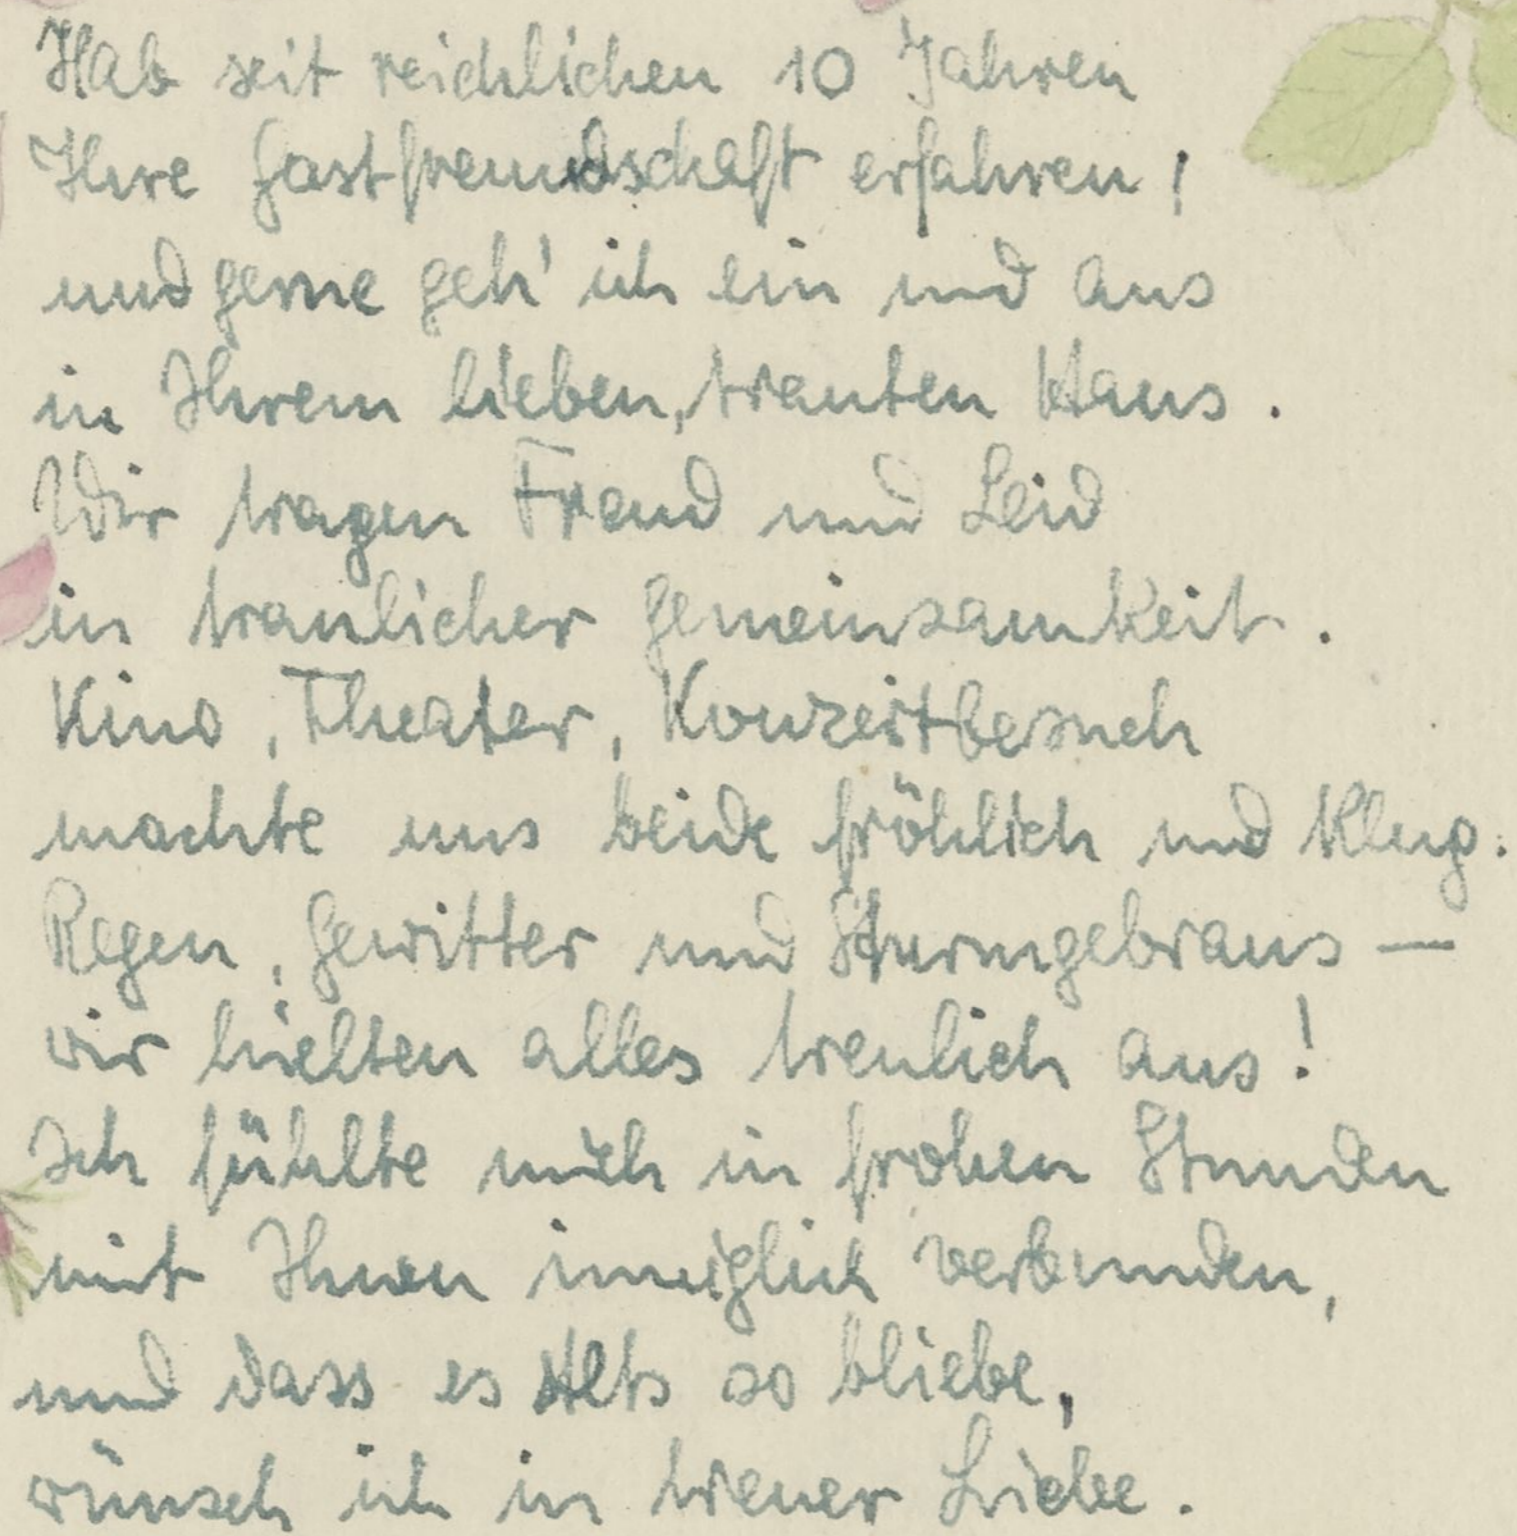 Hab seit reichlichen 10 Jahren
Ihre Gastfreundschaft erfahren,
und gerne geh' ich ein und aus
in Ihrem lieben, trauten Haus.
Wir tragen Freud und Leid
in traulicher Gemeinsamkeit.
Kino, Theater, Konzertbesuch
machte uns beide fröhlich und klug.
Regen, Gewitter und Sturmgebraus –
wir hielten alles treulich aus!
Ich fühlte mich in frohen Stunden
mit Ihnen inniglich verbunden,
und dass es stets so bliebe,
wünsch ich in treuer Liebe.